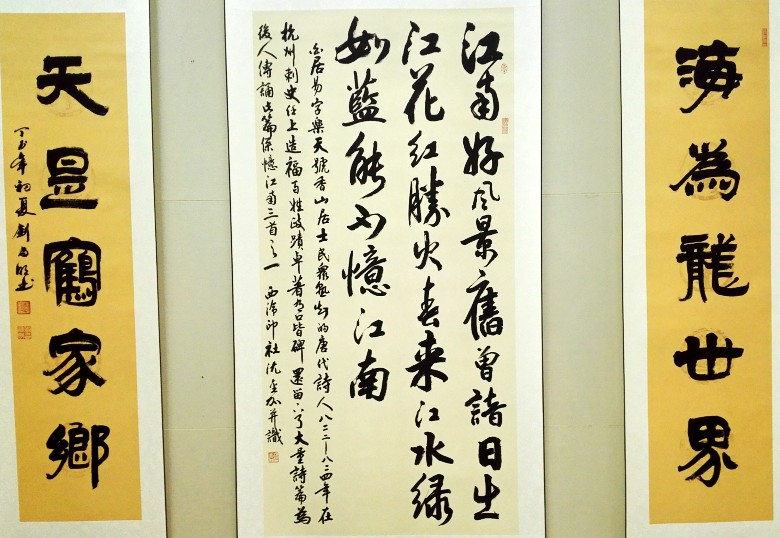 海為龍世界
江南好风景舊曾諳日出
江花红勝火春来江水绿
如藍能不憶江南
白居易字樂天號香山居士民眾熟知的唐代詩人八二二-八二四年在
杭州刺史任上造福百姓政蹟卓著有口皆碑還留下了大量詩篇為
後人傳誦此篇係憶江南三首之一 西泠印社沈加并識
天昰鶴家鄉
年初夏劉